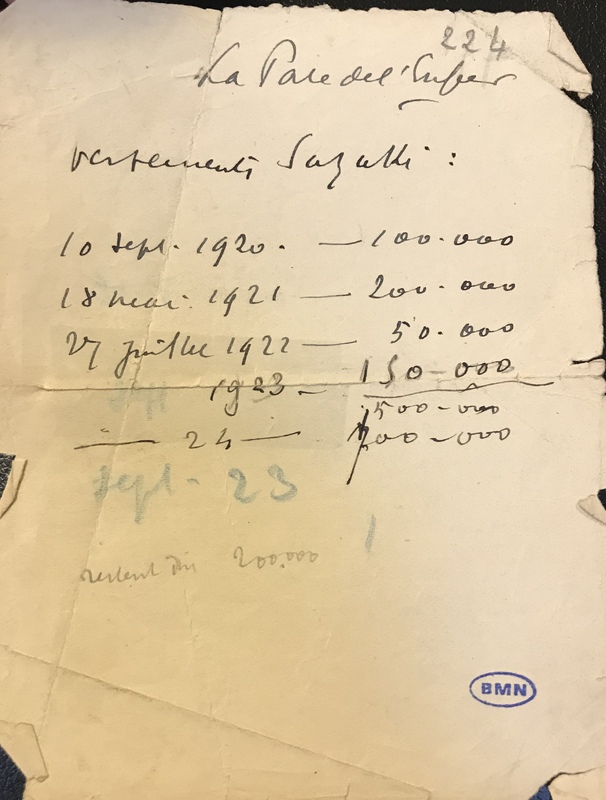 224
La Porte de l'Enfer
versements Suzuki :
10 sept. 1920. — 100.000
18 mai. 1921 — 200.000
27 juillet 1922 — 50.000
1923 — 150-000
500-000
— 24 — 200-000
sept - 23
restent dûs 200.000
BMN